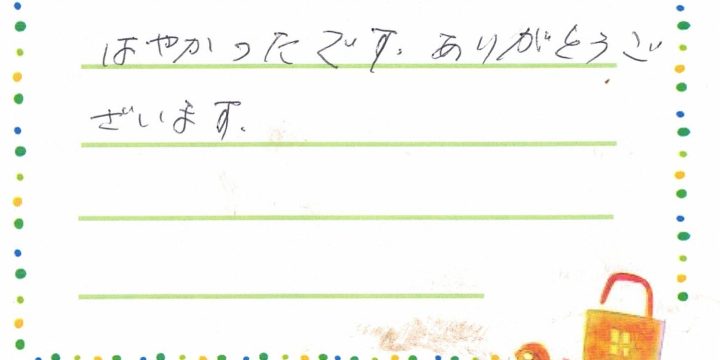 はやかったです。ありがとうご
ざいます。